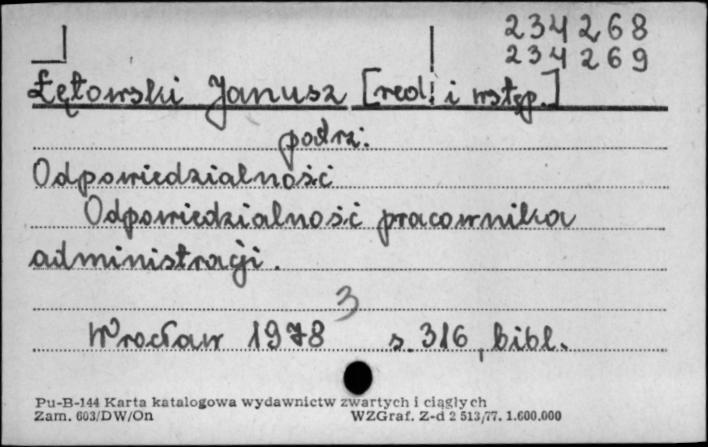 234268
234269
Łętowski Janusz [red. i wstęp.]
patrz:
Odpowiedzialność
Odpowiedzialność pracownika
administracji.
3
Wrocław 1978 s. 316, bibl.
Pu-B-144 Karta katalogowa wydawnictw zwartych i ciągłych
Zam. 603/DW/On WZGraf. Z-d 2 513/77. 1.600.000